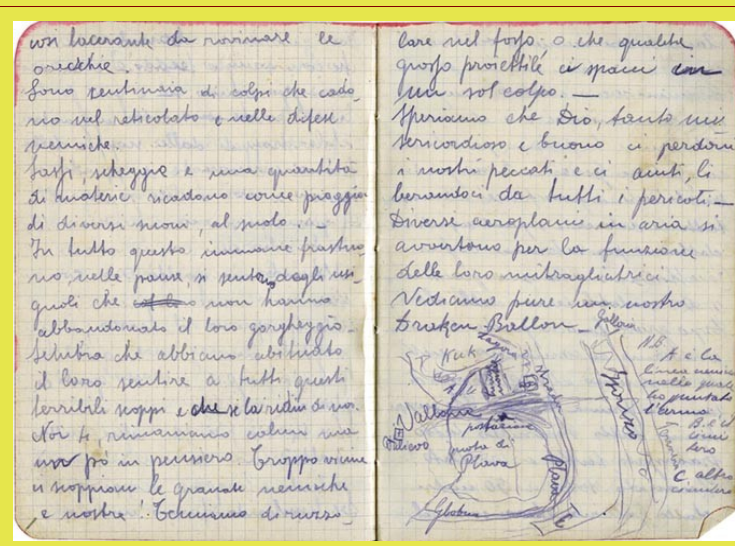 così lacerante da rovinare le
orecchie.
Sono centinaia di colpi che cado_
no nel reticolato e nelle difese
nemiche.
Sassi, scheggie e una quantità
di materie ricadono come pioggia
di diversi suoni, al suolo. _
In tutto questo immane frastuo_
no, nelle pause, si sentono dagli usi_
gnoli che non hanno
abbandonato il loro gorgheggio_
Sembra che abbiano abituato
il loro sentire a tutti questi
terribili scoppi e che se la ridino di noi.
Noi
un po in pensiero. Troppo vicine
ci scoppiano le granate nemiche
e nostre! Temiamo di ruzzo_
lare nel fosso o che qualche
grosso proiettile ci spazzi in
un sol colpo. _
Speriamo che Dio, tanto mi_
sericordioso e buono ci perdoni
i nostri peccati e ci aiuti, li
berandoci da tutti i pericoli._
Diverse aeroplani in aria si
avvertono per la funzione
delle loro mitragliatrici
Vediamo pure un nostro
Draken Ballon_
Kuk
N.B.
A è la
linea
nella quale
ho puntato
l'arma
B. è il
cimi
tero
C. altro
cimitero
Isonzo
Vallone
Paliovo
postazione
quota di
Plava
Plava
Globna
C